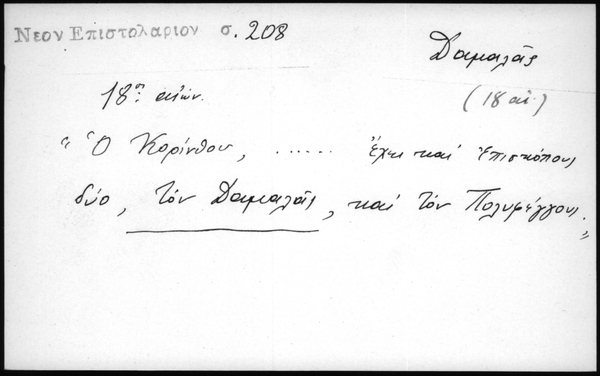 Νεον Επιστολαριον σ. 208
Δαμαλᾶς
18ος αἰών.
(18 αἰ.)
"Ὁ Κορίνθου, ...... ἔχει καὶ ἐπισκόπους
δύο, τὸν Δαμαλᾶς, καὶ τὸν Πολυφέγγους."